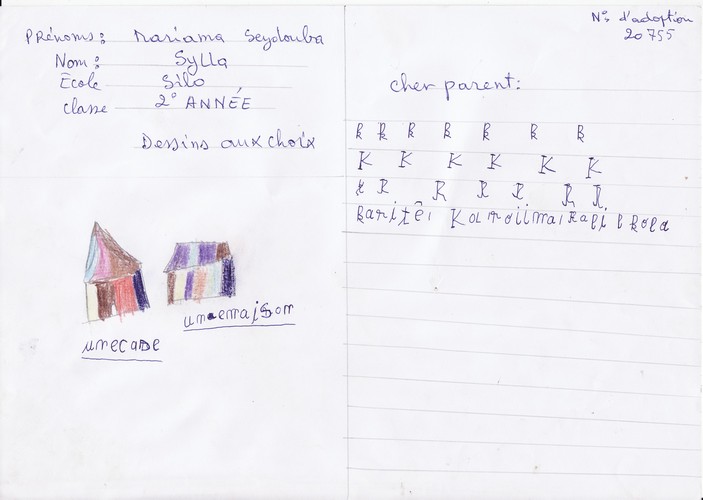 Prénoms: Mariama Seydouba
Nom: Sylla
École Silo
Classe 2° ANNÉE
Dessins aux choix
unecase
unemaison
N° d'adoption
20755
cher parent:
k k k k k k k
K K K K K K
k k k k k k k
karitéi